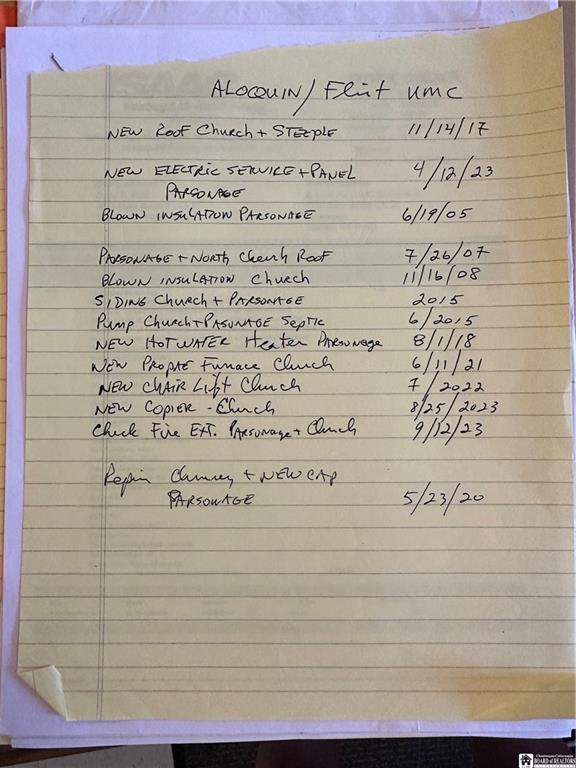 ALOCQUIN / Flint UMC
NEW ROOF CHURCH + STEEPLE 11/14/17
NEW ELECTRIC SERVICE + PANEL 4/12/23
PARSONAGE
BLOWN INSULATION PARSONAGE 6/19/05
PARSONAGE + NORTH Church Roof 7/26/07
BLOWN INSULATION CHURCH 11/16/08
SIDING CHURCH + PARSONAGE 2015
Pump Church + PASONAGE SEPTIC 6/2015
NEW HOT WATER Heater PARSONAGE 8/1/18
NEW PROPAE Furnace Church 6/11/21
NEW CHAIR Lift Church 7/2022
NEW COPIER - Church 8/25/2023
Check Fire EXT. PARSONAGE + Church 9/12/23
Repair Chimney + NEW CAP
PARSONAGE 5/23/20
Chautauqua-Cattaraugus
BOARD of REALTORS